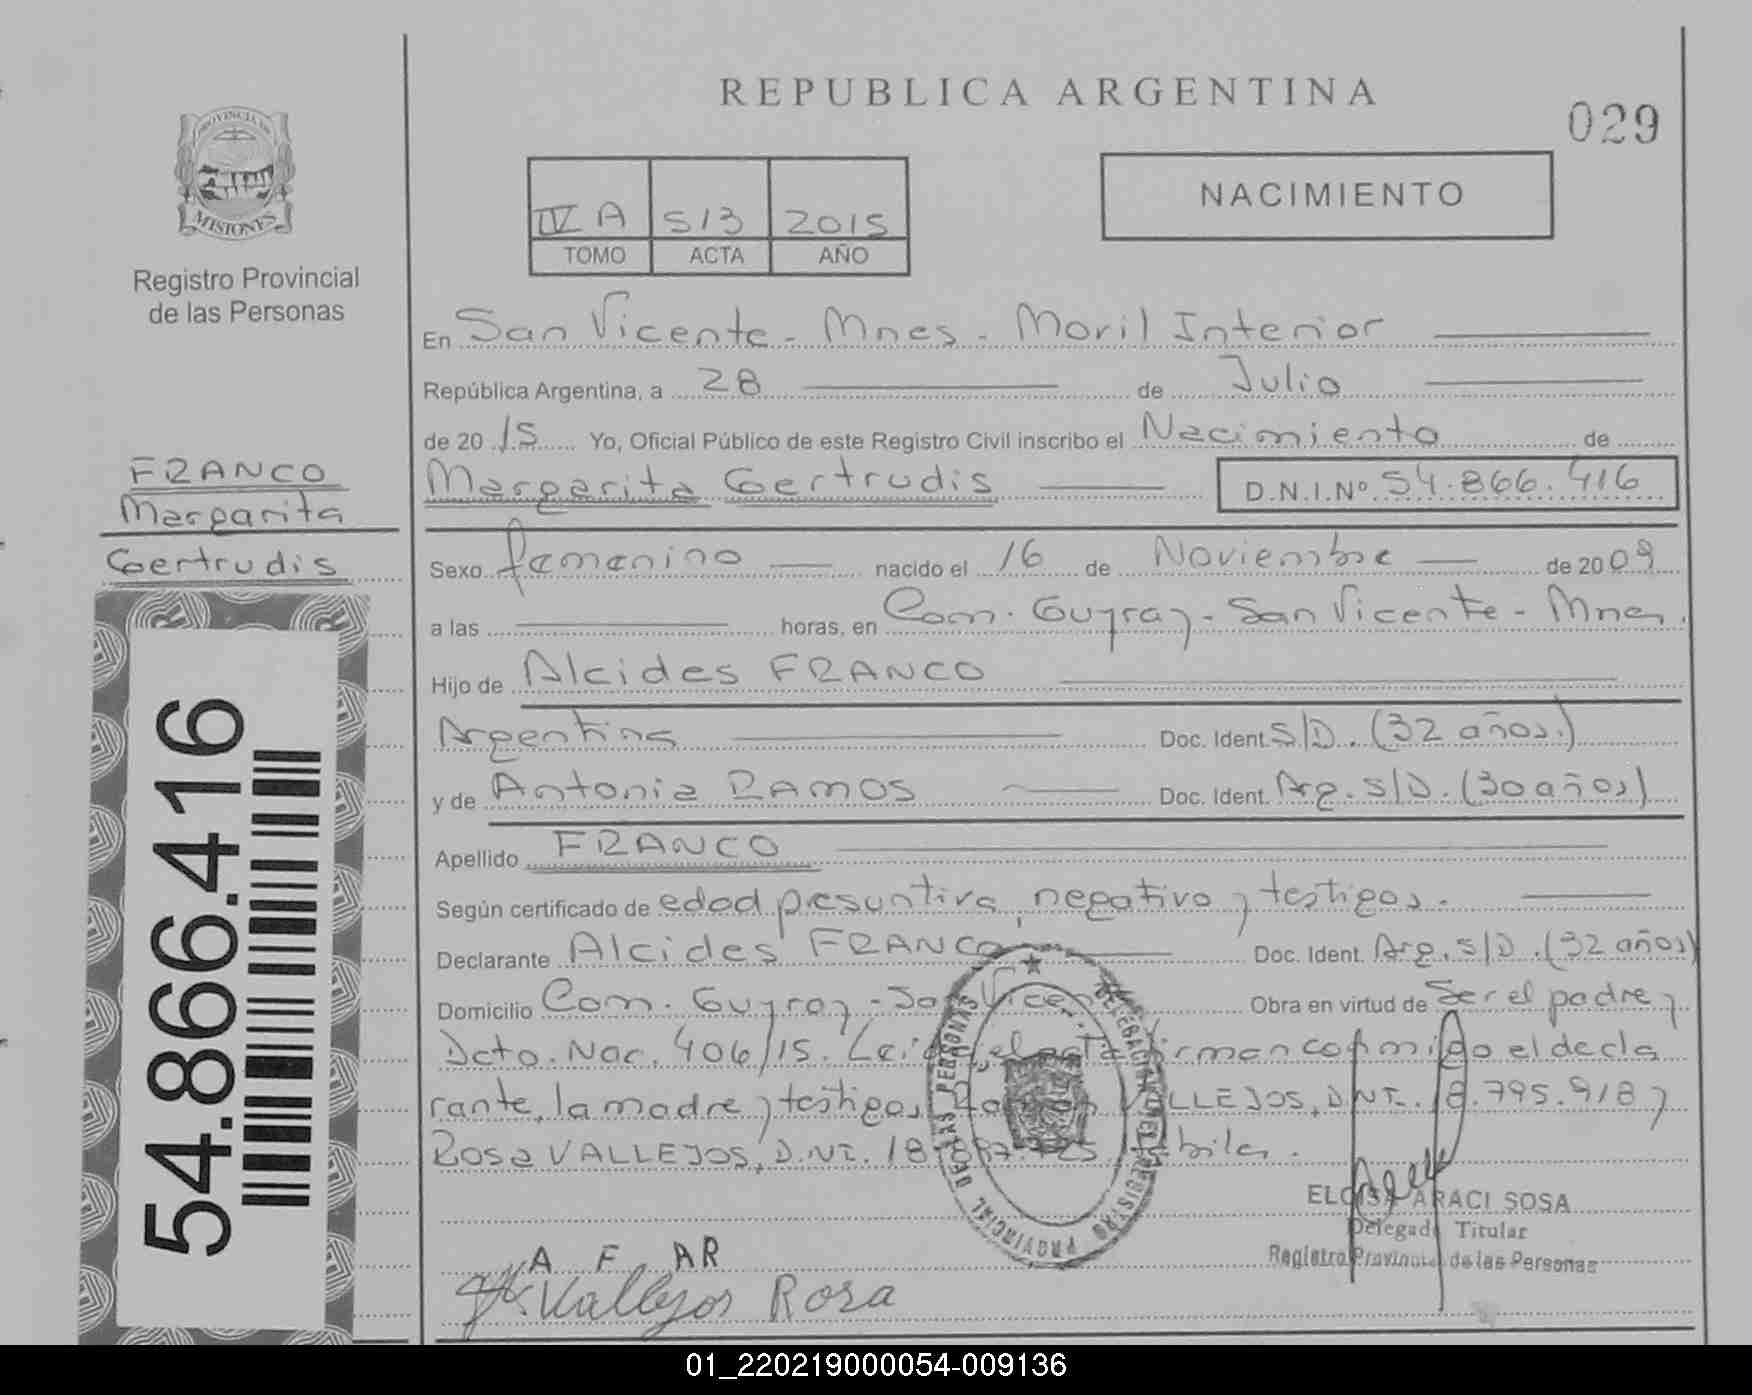 REPUBLICA ARGENTINA
029
PROVINCIA DE
MISIONES
Registro Provincial
de las Personas
IV A 513 2015
TOMO ACTA AÑO
NACIMIENTO
En San Vicente - Mnes - Moril Interior
República Argentina, a 28 de Julio
de 2015 Yo, Oficial Público de este Registro Civil inscribo el Nacimiento de
FRANCO
Margarita
Gertrudis
Margarita Gertrudis D.N.I.Nº 54.866.416
Sexo femenino nacido el 16 de Noviembre de 2009
a las horas, en Com. Guyray - San Vicente - Mnes.
Hijo de Alcides FRANCO
Argentina Doc. Ident. S/D. (32 años.)
y de Antonia RAMOS Doc. Ident. Arg. S/D. (30 años)
Apellido FRANCO
Según certificado de edad presuntiva, negativo y testigos.
Declarante Alcides FRANCO Doc. Ident. Arg. S/D. (32 años)
Domicilio Com. Guyray - San Vicen Obra en virtud de Ser el padre y
Dcto. Nac. 406/15. Leida el acta firman conmigo el decla
rante, la madre y testigos VALLEJOS, DNI. 18.795.918 y
Rosa VALLEJOS, D.NI.
54.866.416
DELEGACION DEL REGISTRO PROVINCIAL DE LAS PERSONAS
ELOISA ARACI SOSA
Delegado Titular
Registro Provincial de las Personas
A F AR
Vallejos Rosa
01_220219000054-009136